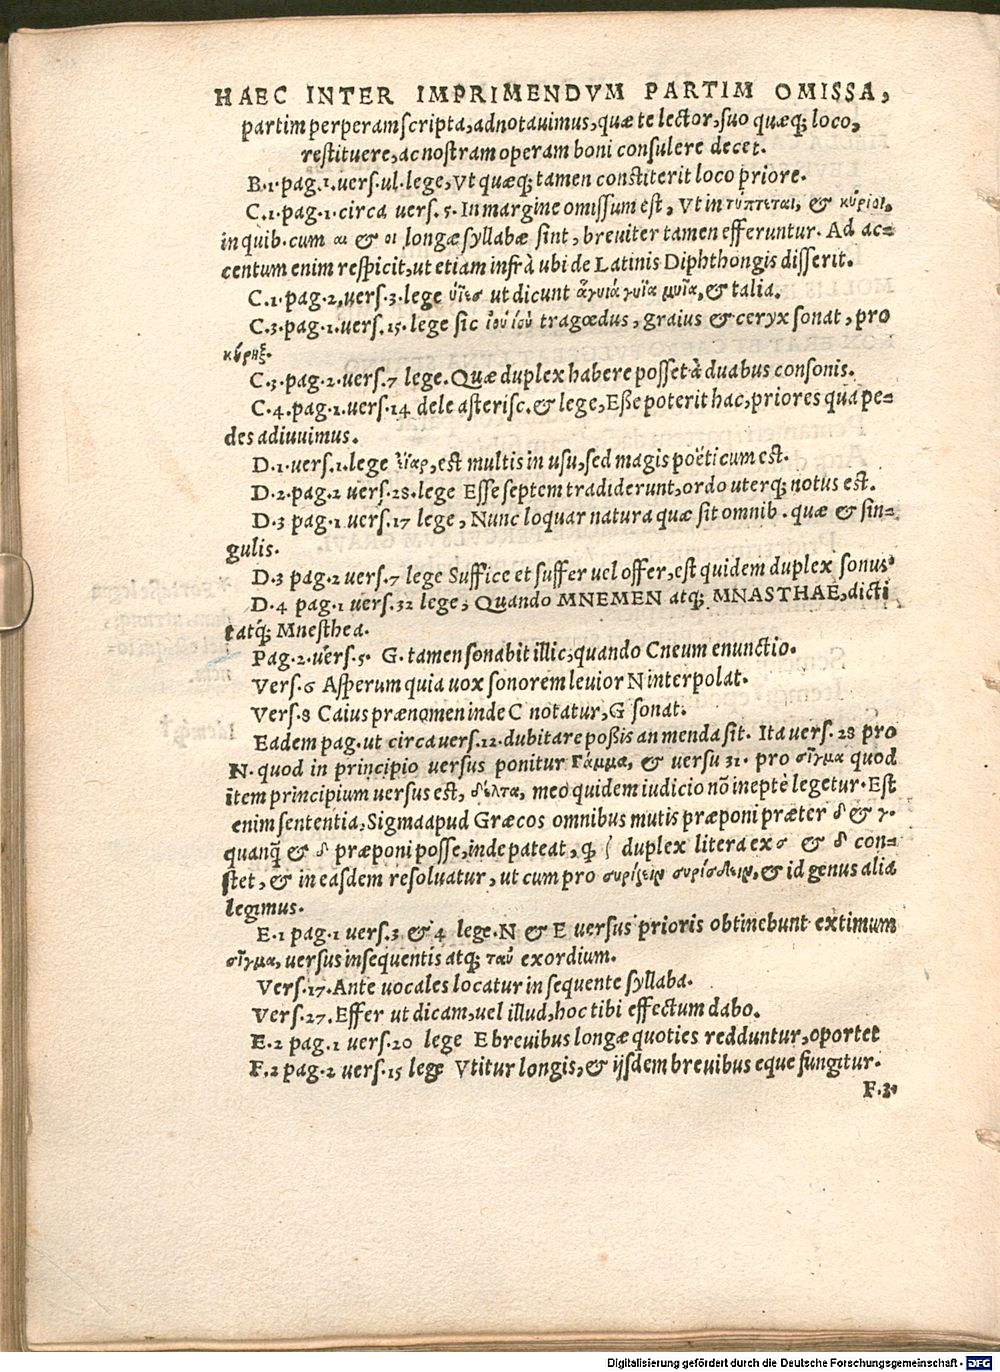 HAEC INTER IMPRIMENDVM PARTIM OMISSA,
partim perperam scripta, adnotauimus, quæ te lector, suo quæq; loco,
restituere, ac nostram operam boni consulere decet.
B.1.pag.1.vers.ul.lege, Vt quæq; tamen constiterit loco priore.
C.1.pag.1.circa vers.5.In margine omissum est, Vt in τύπτεται, & κύριοι,
in quib.cum αι & οι longæ syllabæ sint, breuiter tamen efferuntur. Ad ac=
centum enim respicit, ut etiam infrà ubi de Latinis Diphthongis disserit.
C.1.pag.2.vers.3.lege ὑῖεσ ut dicunt ἄγυιά γυῖα μυῖα, & talia.
C.3.pag.1.vers.15.lege sic ἰοὺ ἰού tragœdus, graius & ceryx sonat, pro
κύρηξ.
C.3.pag.2.vers.7 lege. Quæ duplex habere posset à duabus consonis.
C.4.pag.1.vers.14 dele asterisc.& lege, Eße poterit hac, priores qua pe=
des adiuuimus.
D.1.vers.1.lege εἶαρ, est multis in usu, sed magis poëticum est.
D.2.pag.2 vers.28.lege Esse septem tradiderunt, ordo uterq; notus est.
D.3 pag.1 vers.17 lege, Nunc loquar natura quæ sit omnib. quæ & sin=
gulis.
D.3 pag.2 vers.7 lege Suffice et suffer uel offer, est quidem duplex sonus
D.4 pag.1 vers.32 lege, Quando MNEMEN atq; MNASTHAE, dicti
tatq́; Mnesthea.
Pag.2.vers.5. G.tamen sonabit illic, quando Cneum enunctio.
Vers.6 Asperum quia uox sonorem leuior N interpolat.
Vers.8 Caius prænomen inde C notatur, G sonat.
Eadem pag.ut circa vers.12.dubitare poßis an menda sit. Ita vers.28 pro
N.quod in principio versus ponitur Γάμμα, & uersu 31. pro σῖγμα quod
item principium uersus est, δέλτα, meo quidem iudicio nō ineptè legetur.Est
enim sententia, Sigma apud Græcos omnibus mutis præponi præter δ & γ.
quanq̃ & δ præponi posse, inde pateat, q; ζ duplex litera ex σ & δ con=
stet, & in easdem resoluatur, ut cum pro συρίζειν συρίσδειν, & id genus alia
legimus.
E.1 pag.1 uers.3 & 4 lege.N & E uersus prioris obtinebunt extimum
σῖγμα, uersus insequentis atq; ταῦ exordium.
Vers.17.Ante uocales locatur in sequente syllaba.
Vers.27.Effer ut dicam, uel illud, hoc tibi effectum dabo.
E.2 pag.1 vers.20 lege E breuibus longæ quoties redduntur, oportet
F.2 pag.2 uers.15 lege Vtitur longis, & ijsdem breuibus eque fungitur.
F.3.
Digitalisierung gefördert durch die Deutsche Forschungsgemeinschaft - DFG